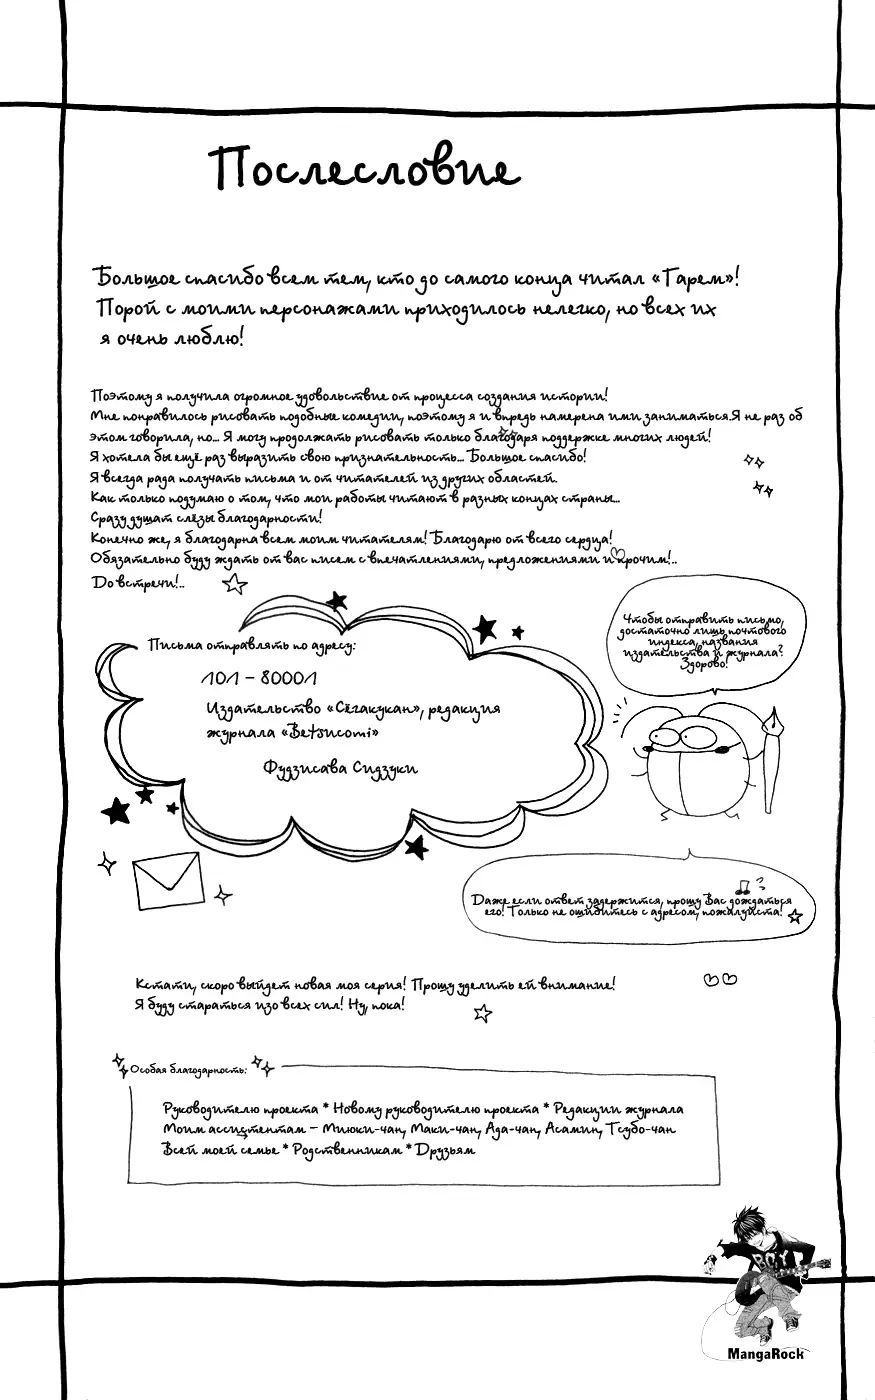 Послесловие
Большое спасибо всем тем, кто до самого конца читал «Гарем»!
Порой с моими персонажами приходилось нелегко, но всех их
я очень люблю!
Поэтому я получила огромное удовольствие от процесса создания истории!
Мне понравилось рисовать подобные комедии, поэтому я и впредь намерена ими заниматься.Я не раз об
этом говорила, но... Я могу продолжать рисовать только благодаря поддержке многих людей!
Я хотела бы ещё раз выразить свою признательность... Большое спасибо!
Я всегда рада получать письма и от читателей из других областей.
Как только подумаю о том, что мои работы читают в разных концах страны...
Сразу душат слёзы благодарности!
Конечно же, я благодарна всем моим читателям! Благодарю от всего сердца!
Обязательно буду ждать от вас писем с впечатлениями, предложениями и прочим!..
До встречи!..
Чтобы отправить письмо,
достаточно лишь почтового
индекса, названия
издательства и журнала?
Здорово!
Письма отправлять по адресу:
101 – 80001
Издательство «Сёгакукан», редакция
журнала «Betsucomi»
Фудзисава Сидзуки
Даже если ответ задержится, прошу Вас дождаться
его! Только не ошибитесь с адресом, пожалуйста!
Кстати, скоро выйдет новая моя серия! Прошу уделить ей внимание!
Я буду стараться изо всех сил! Ну, пока!
Особая благодарность:
Руководителю проекта * Новому руководителю проекта * Редакции журнала
Моим ассистентам – Миюки-чан, Маки-чан, Ада-чан, Асамин, Тсубо-чан
Всей моей семье * Родственникам * Друзьям
BOY
MangaRock